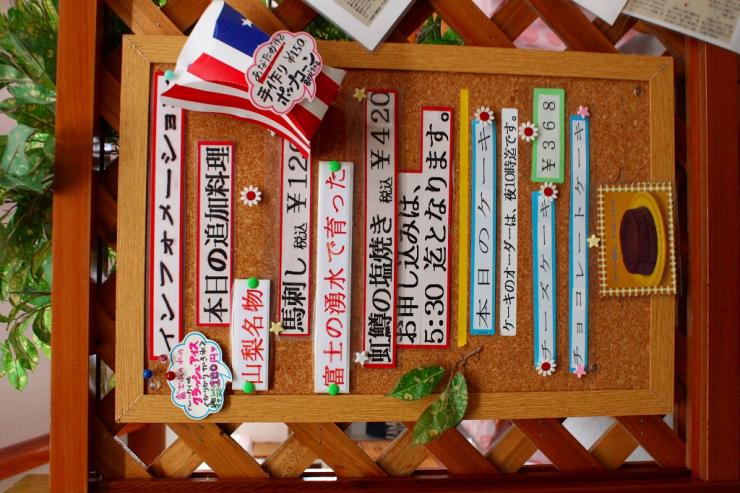 インフォメーショ
本日の追加料理
山梨名物
馬刺し 税込 ￥12
富士の湧水で育った
虹鱒の塩焼き 税込 ￥420
お申し込みは、
5:30 迄となります。
本日のケーキ
ケーキのオーダーは、夜10時迄です。
チーズケーキ
￥368
チョコレートケーキ
手作り ￥150
ポップコーン
クラッシュアイス